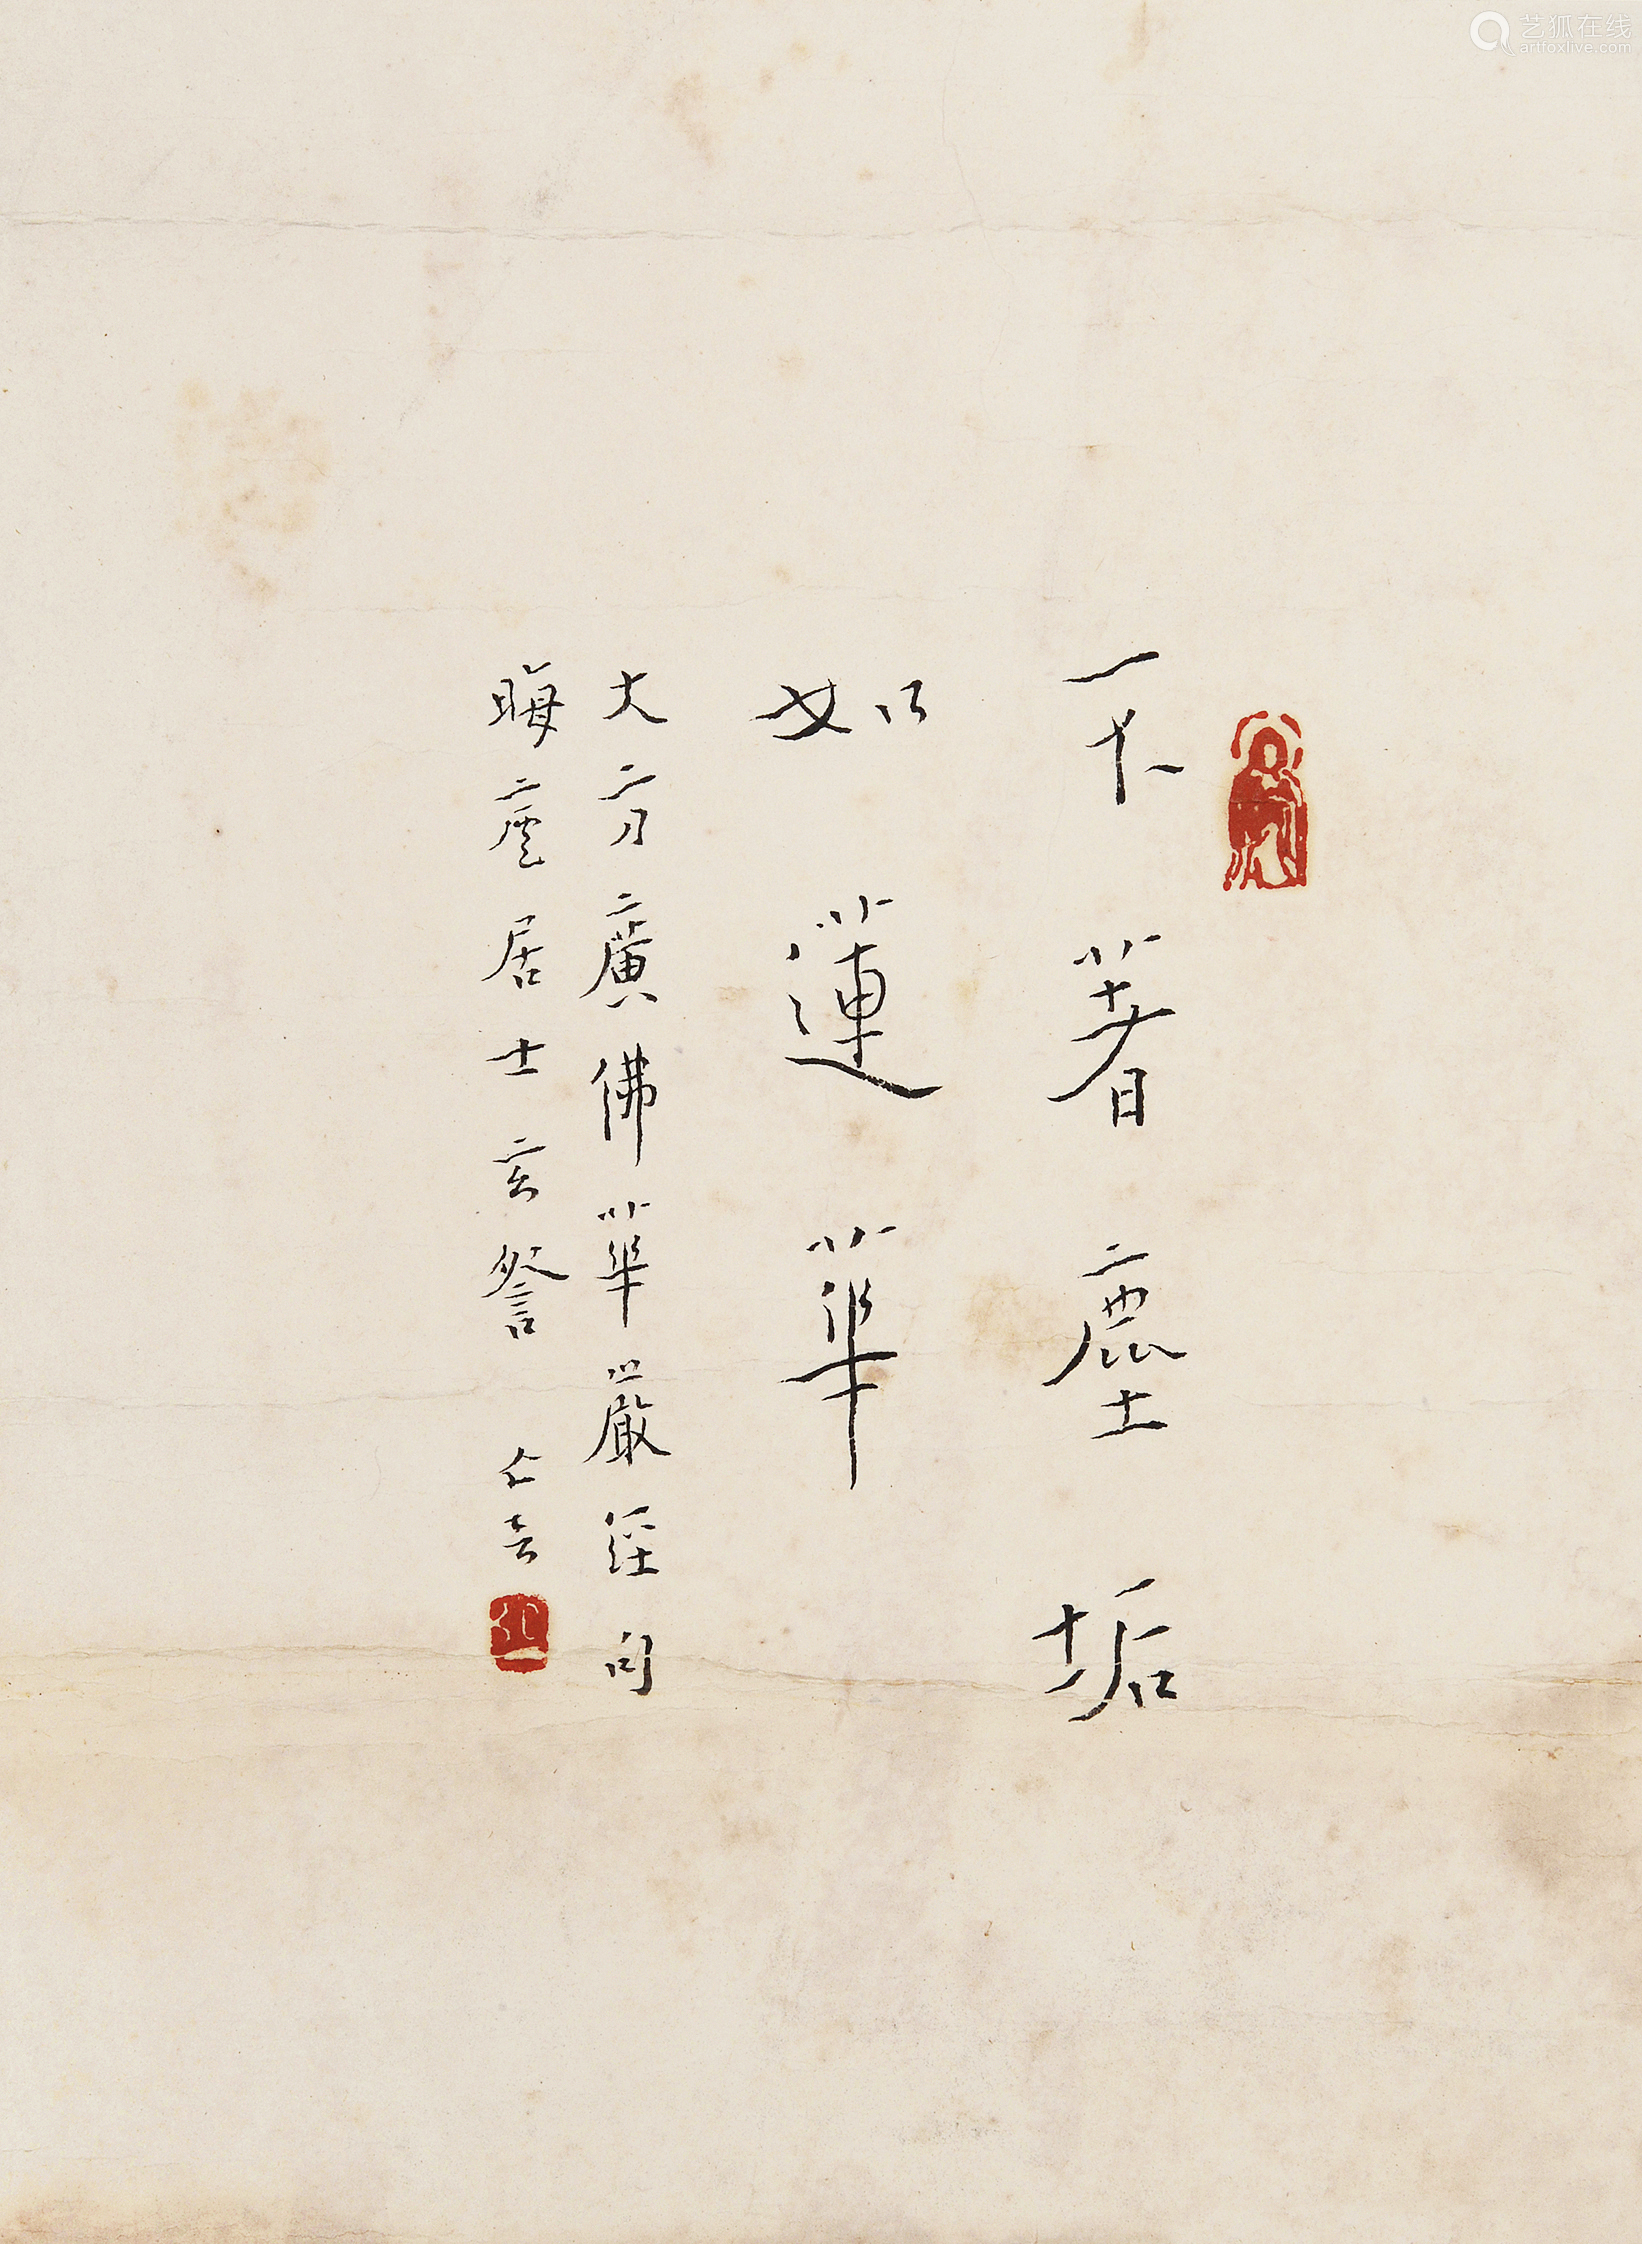 艺狐在线
artfoxlive.com
不著塵垢
如蓮華
大方廣佛華嚴經句
晦廬居士玄詧